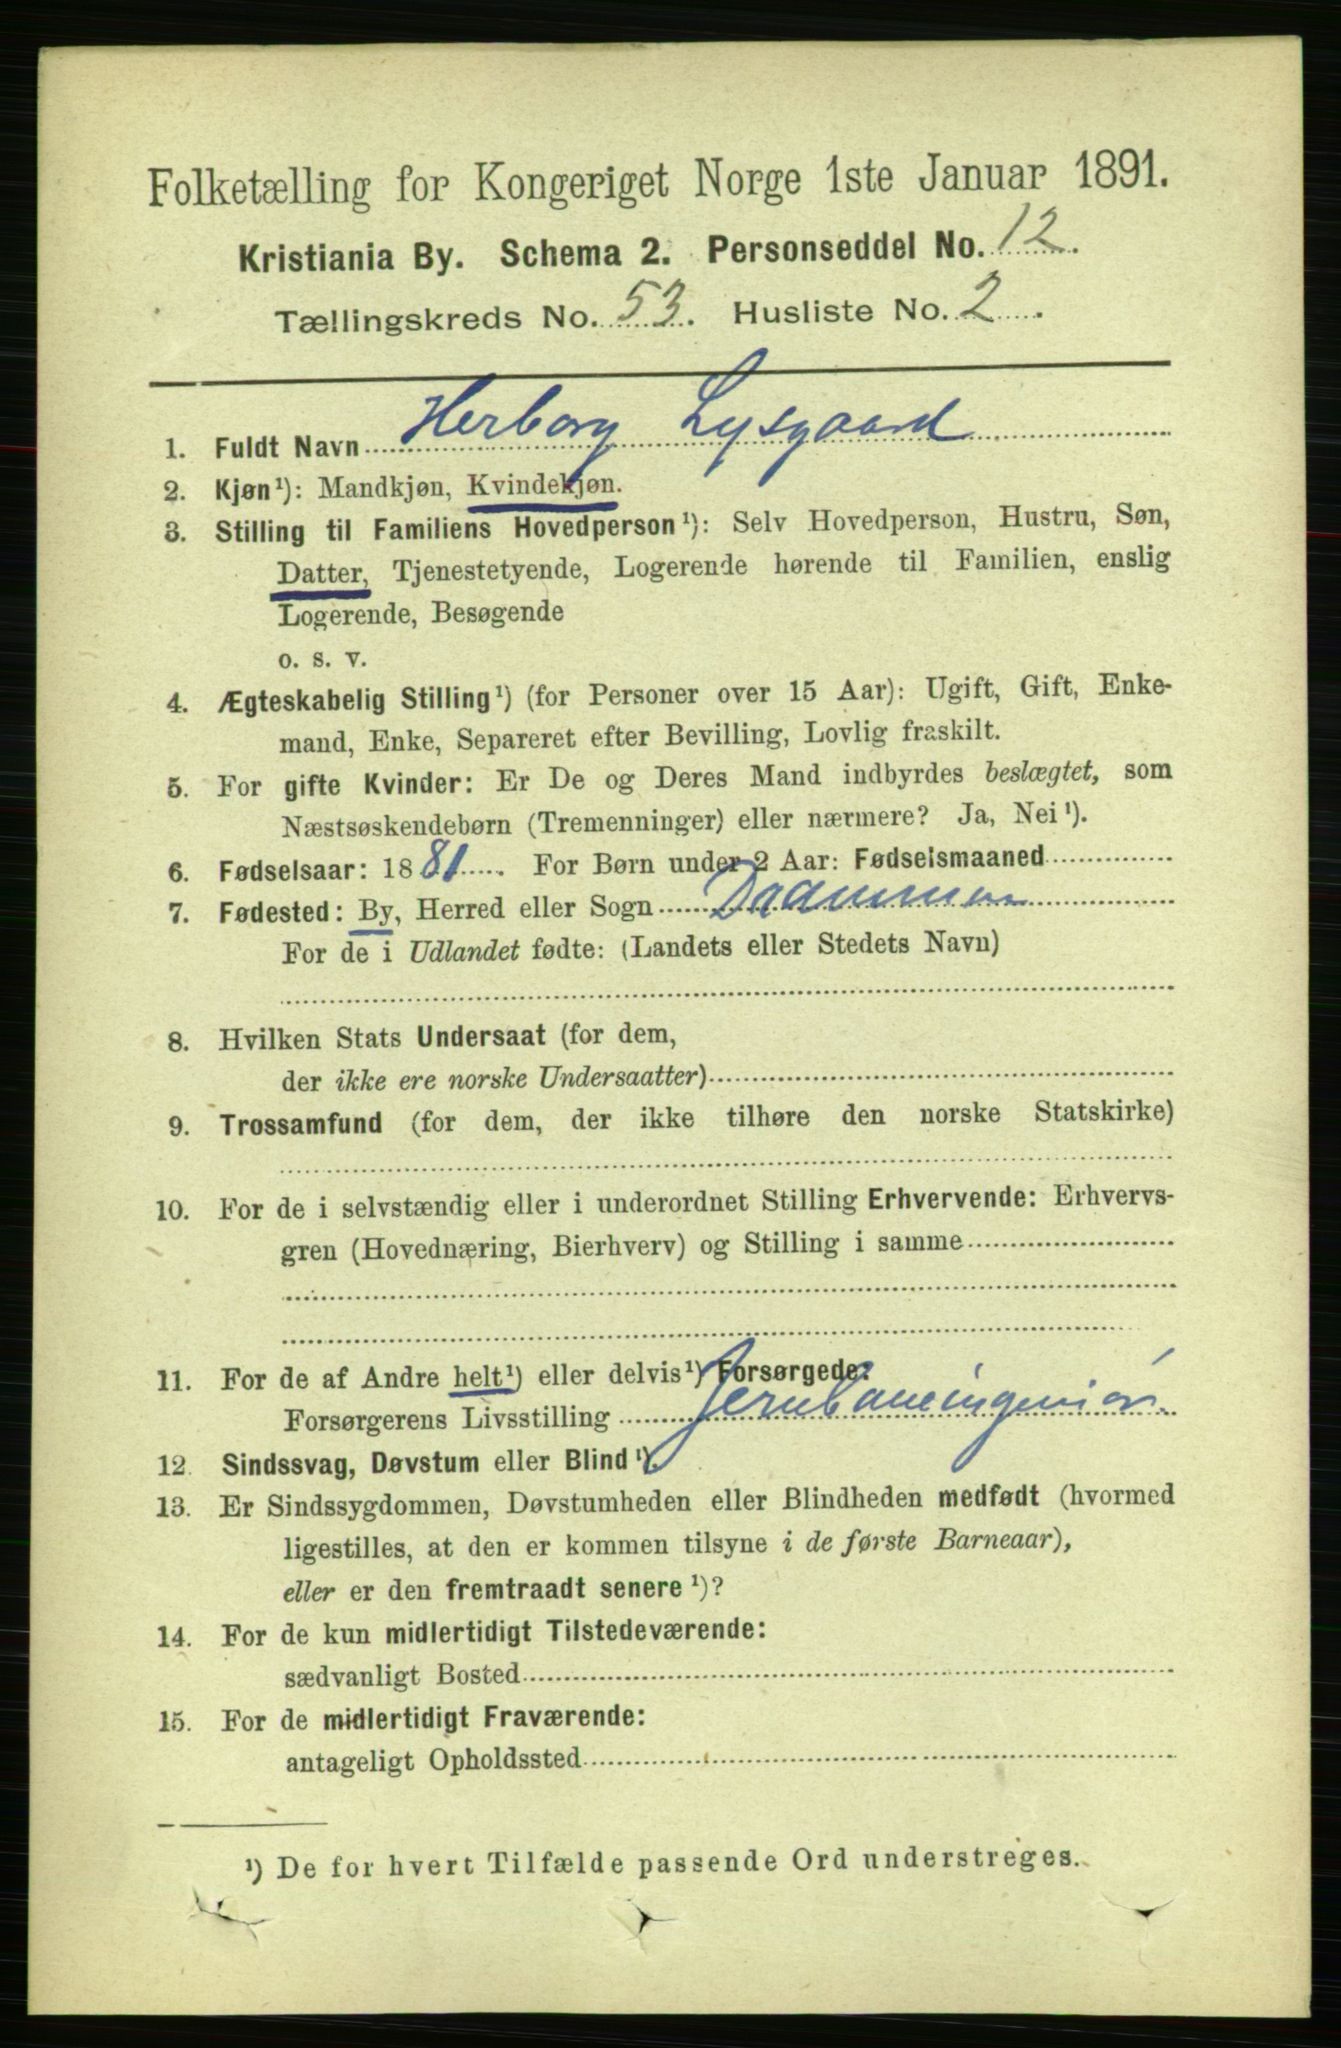 Folketælling for Kongeriget Norge 1ste Januar 1891.
Kristiania By. Schema 2. Personseddel No. 12.
Tællingskreds No. 53. Husliste No. 2.
1. Fuldt Navn Herborg Lysgaard
2. Kjøn¹): Mandkjøn, Kvindekjøn.
3. Stilling til Familiens Hovedperson¹): Selv Hovedperson, Hustru, Søn,
Datter, Tjenestetyende, Logerende hørende til Familien, enslig
Logerende, Besøgende
o. s. v.
4. Ægteskabelig Stilling¹) (for Personer over 15 Aar): Ugift, Gift, Enke-
mand, Enke, Separeret efter Bevilling, Lovlig fraskilt.
5. For gifte Kvinder: Er De og Deres Mand indbyrdes beslægtet, som
Næstsøskendebørn (Tremenninger) eller nærmere? Ja, Nei¹).
6. Fødselsaar: 1881. For Børn under 2 Aar: Fødselsmaaned
7. Fødested: By, Herred eller Sogn Drammen
For de i Udlandet fødte: (Landets eller Stedets Navn)
8. Hvilken Stats Undersaat (for dem,
der ikke ere norske Undersaatter)
9. Trossamfund (for dem, der ikke tilhøre den norske Statskirke)
10. For de i selvstændig eller i underordnet Stilling Erhvervende: Erhvervs-
gren (Hovednæring, Bierhverv) og Stilling i samme
11. For de af Andre helt¹) eller delvis¹) Forsørgede:
Forsørgerens Livsstilling Jernbaneingeniør.
12. Sindssvag, Døvstum eller Blind¹).
13. Er Sindssygdommen, Døvstumheden eller Blindheden medfødt (hvormed
ligestilles, at den er kommen tilsyne i de første Barneaar),
eller er den fremtraadt senere¹)?
14. For de kun midlertidigt Tilstedeværende:
sædvanligt Bosted
15. For de midlertidigt Fraværende:
antageligt Opholdssted
¹) De for hvert Tilfælde passende Ord understreges.